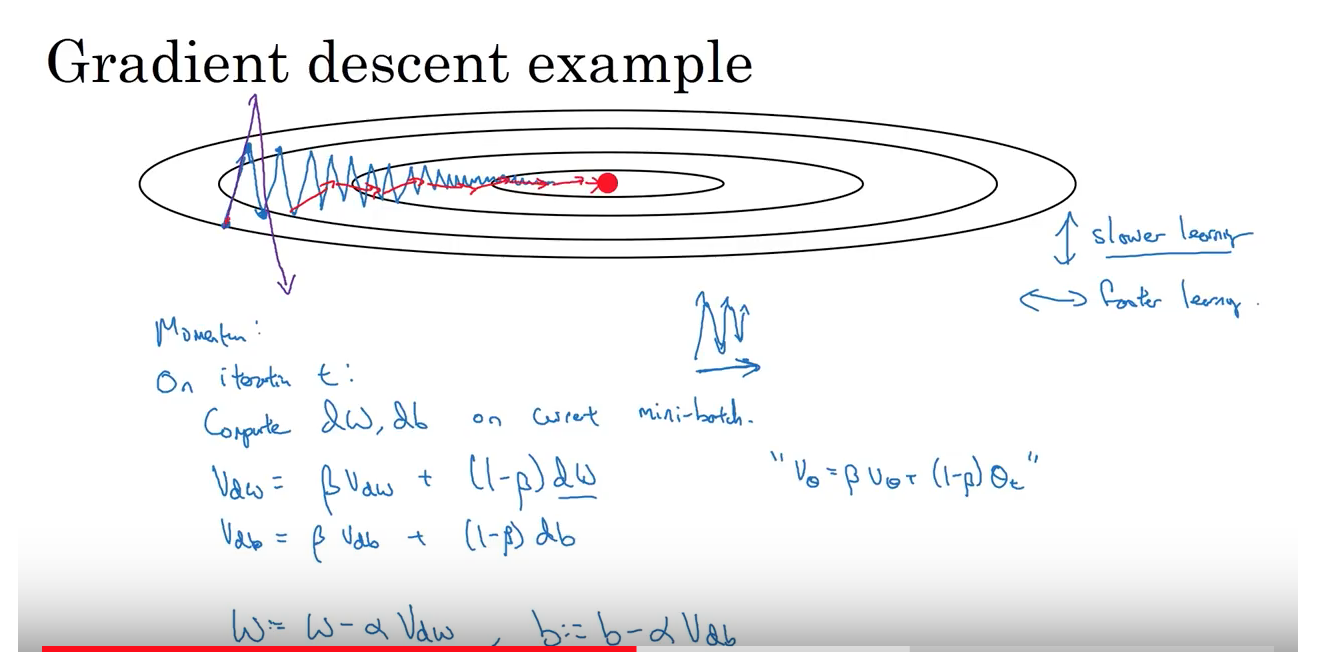 Gradient descent example
slower learning
faster learning.
Momentum:
On iteration t:
Compute dW, db on current mini-batch.
Vdw = βVdw + (1-β)dW
"Vθ = βVθ + (1-β)θt"
Vdb = βVdb + (1-β)db
W := W - αVdw , b := b - αVdb